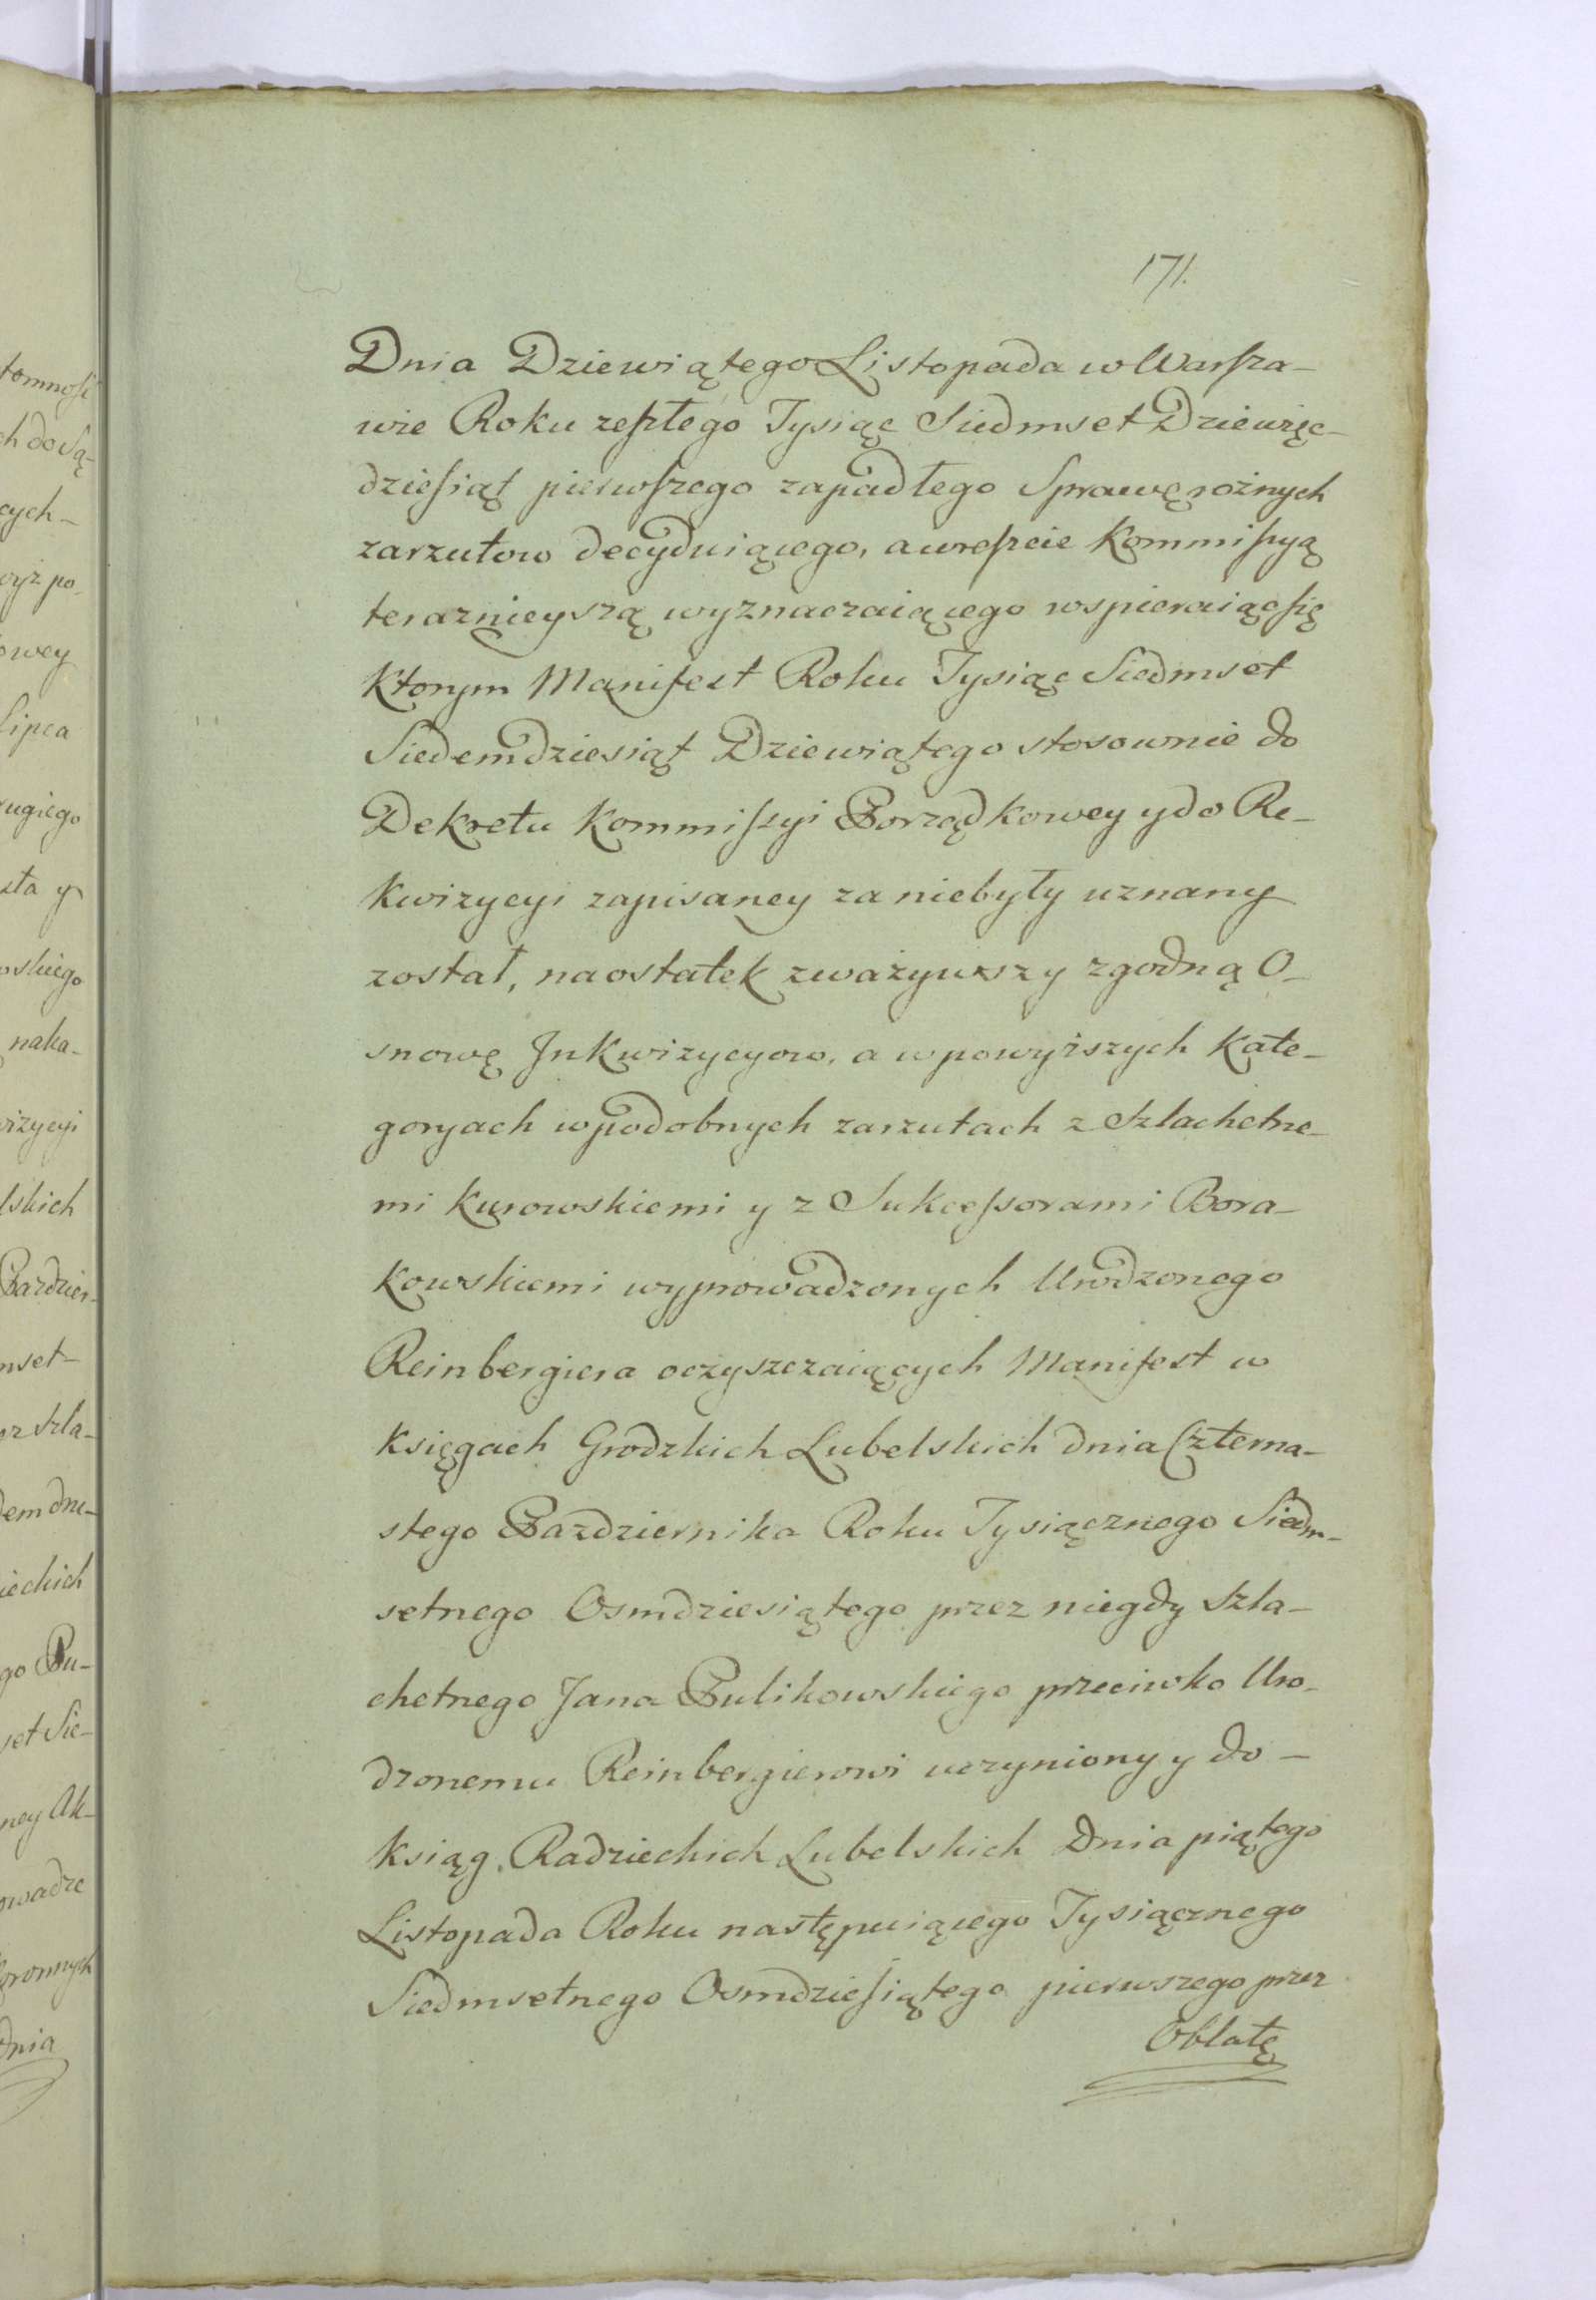 171.
Dnia Dziewiątego Listopada w Warsza-
wie Roku zeszłego Tysiąc Siedmset Dziewięc-
dziesiąt pierwszego zapadłego Sprawę rożnych
zarzutow decyduiącego, a wreszcie Kommissyą
teraznieyszą wyznaczaiącego wspieraiąc się
Ktorym Manifest Roku Tysiąc Siedmset
Siedemdziesiąt Dziewiątego stosownie do
Dekretu Kommissyi Porządkowey y do Re-
kwizycyi zapisaney za niebyły uznany
został, naostatek zważywszy zgodną O-
snowę Jnkwizycyow, a w powyższych Kate-
goryach w podobnych zarzutach z Szlachetne-
mi Kurowskiemi y z Sukcessorami Bora-
kowskiemi wyprowadzonych Urodzonego
Reinbergiera oczyszczaiących Manifest w
Księgach Grodzkich Lubelskich dnia Czterna-
stego Pazdziernika Roku Tysiącznego Siedm-
setnego Osmdziesiątego przez niegdy Szla-
chetnego Jana Pulikowskiego przeciwko Uro-
dzonemu Reinbergierowi uczyniony y do-
Ksiąg Radzieckich Lubelskich Dnia piątego
Listopada Roku następuiącego Tysiącznego
Siedmsetnego Osmdziesiątego pierwszego przez
Oblatę